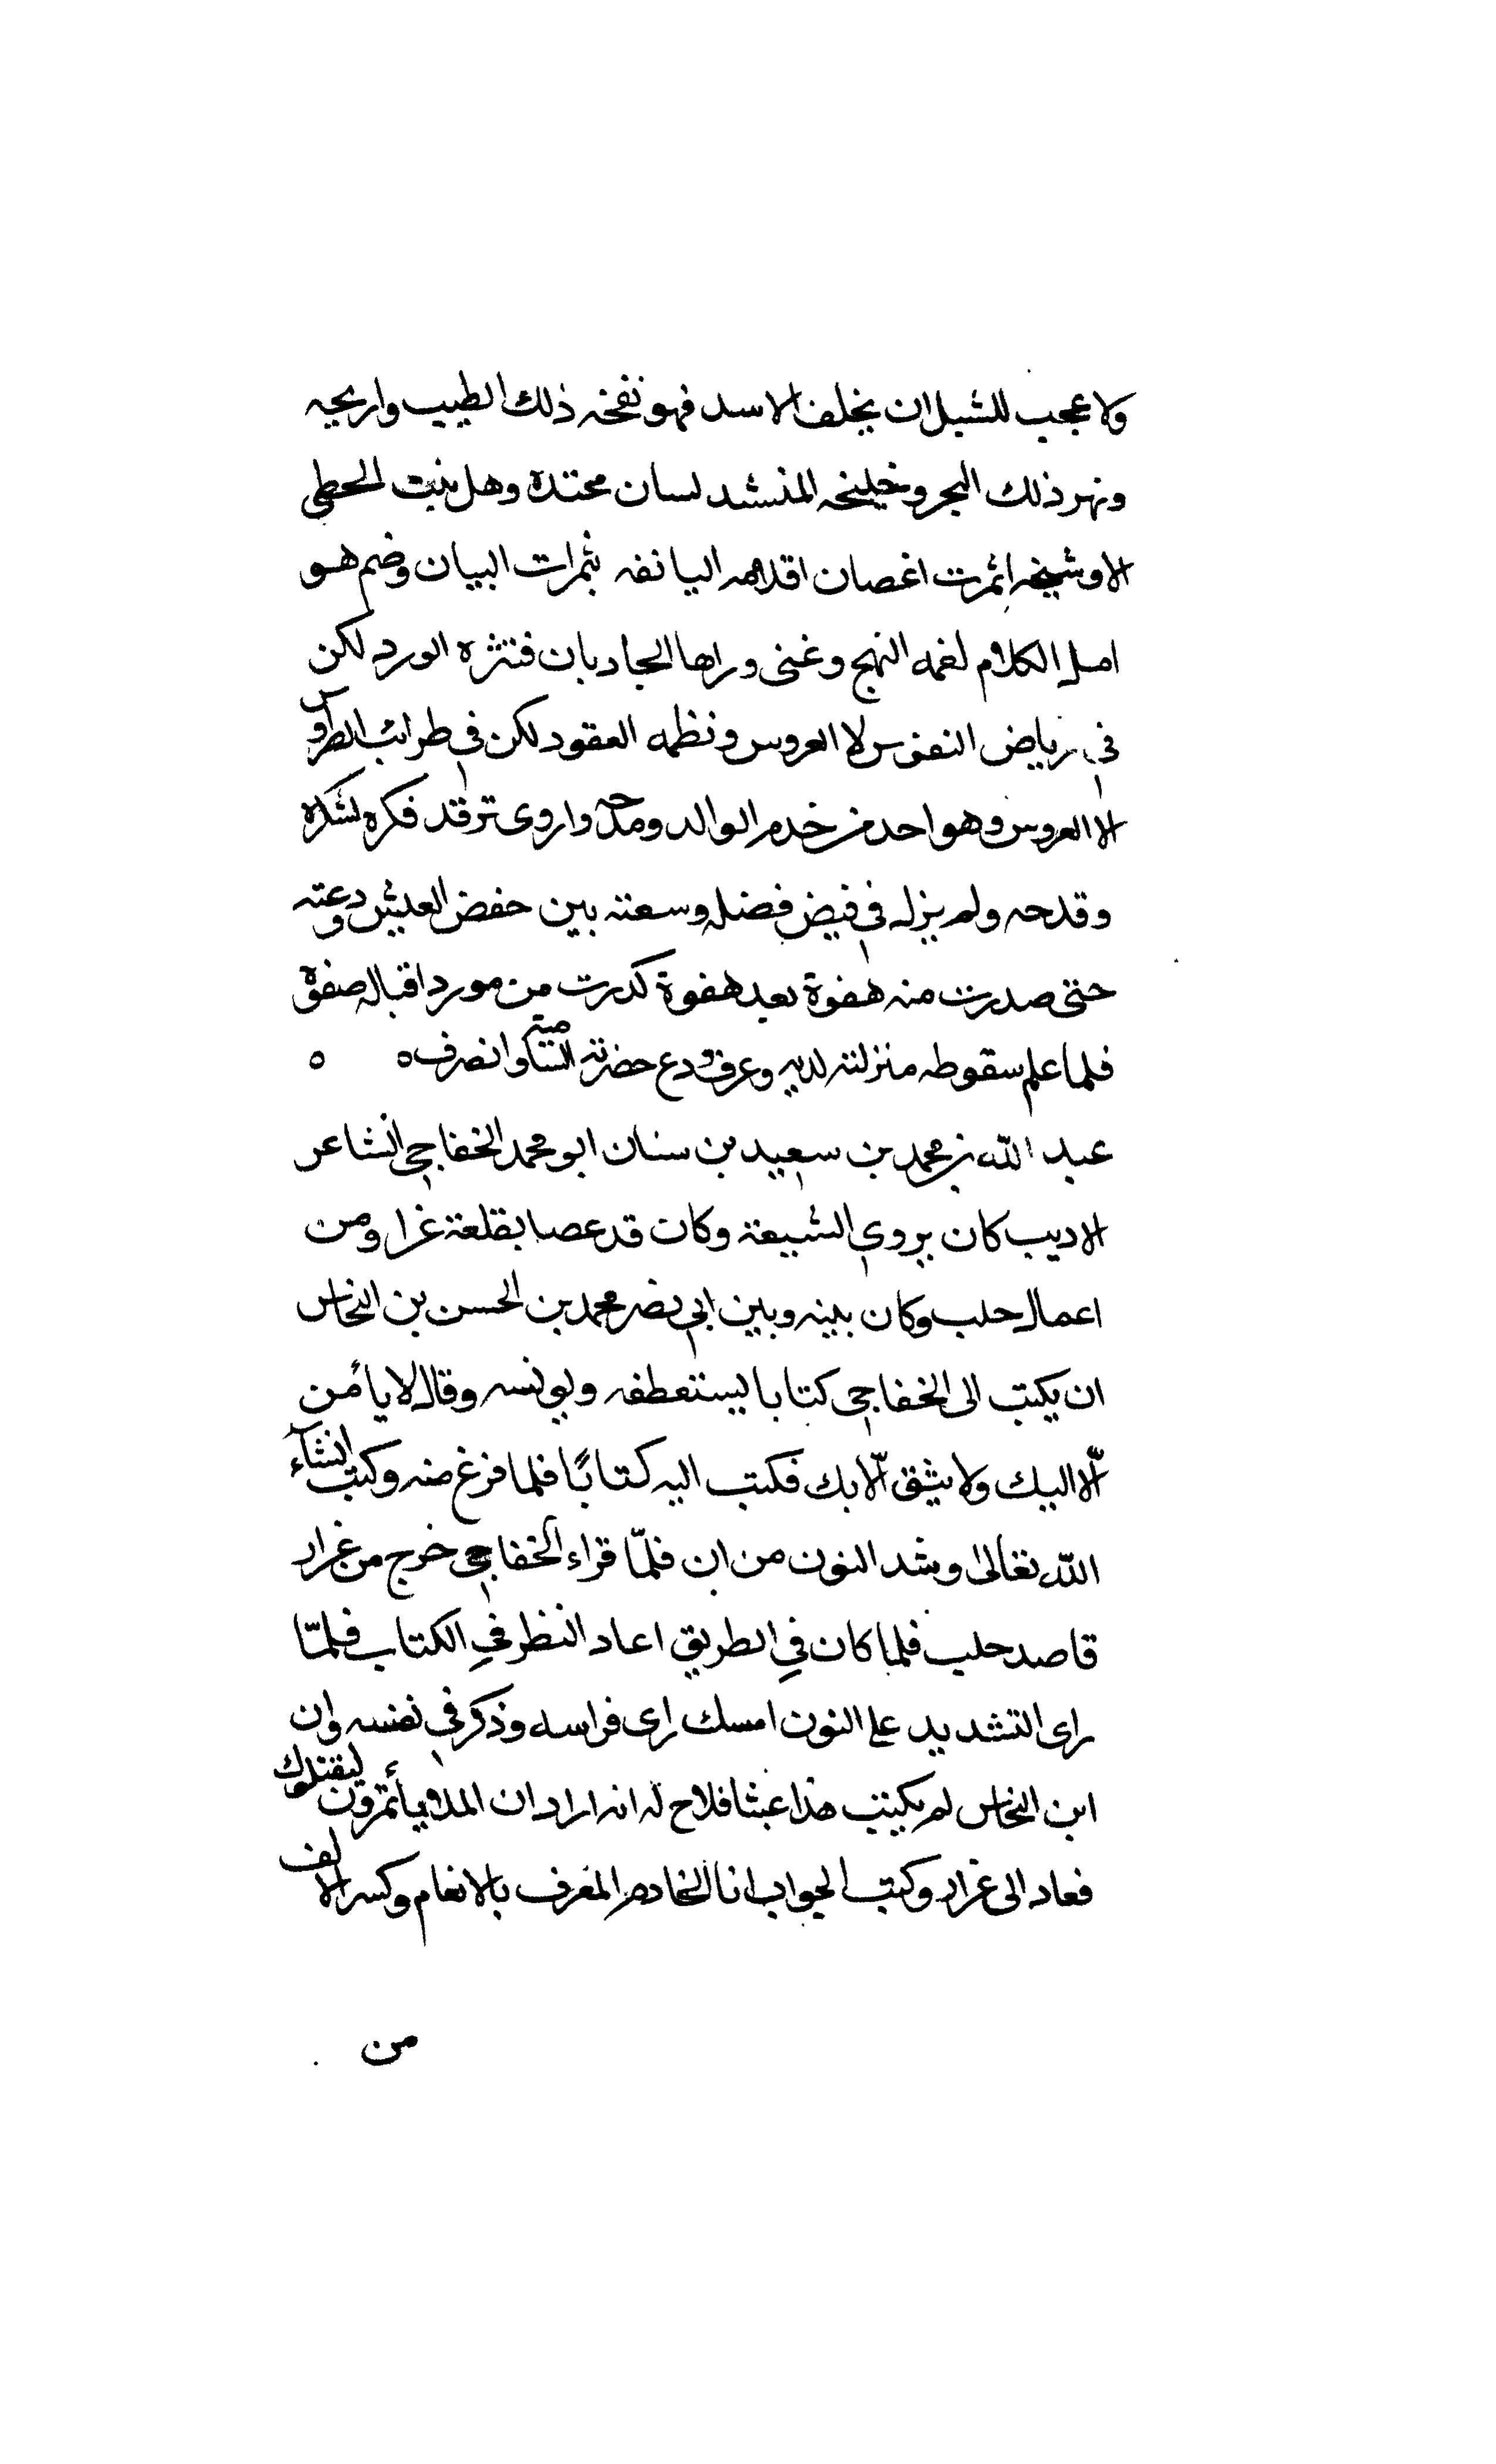 ولا عجب للشبل ان يخلف الاسد فهو نفخه ذلك الطيب واريجه
ونهر ذلك البحر وخليخه المنشد لسان محتده وهل ينبت الخطى
الا وشيخه اثمرت اغصان اقلامه اليانفه بثمرات البيان وضم هو
اصل الكلام لفمه النهج وغنى وراها الحاديان فنثره الورد لكن
فى رياض النفوس لا العروس ونظمه العقود لكن فى طرائب الطروس
لا العروس وهو احد من خدم الوالد ومدحه واروى ترقد فكره لشكره
وقدحه ولم يزل فى فيض فضله وسعته بين خفض العيش ودعته
حتى صدرت منه هفوة بعد هفوة كدرت من مورد اقباله صفوة
فلما علم سقوطه منزلته لديه وعرف ودع حضرته السامية وانصرف ه ه
عبد الله بن محمد بن سعيد بن سنان ابو محمد الخفاجى الشاعر
الاديب كان يروى الشيعة وكان قد عصا بقلعة غرار ومن
اعمال حلب وكان بينه وبين ابى نصر محمد بن الحسن بن النحاس
ان يكتب الى الخفاجى كتابا يستعطفه ويونسه وقال لا يأمن
الّا اليك ولا يثق الّا بك فكتب اليه كتابًا فلما فرغ منه وكتب انشآء
الله تعالى وشد النون من ان فلمّا قراء الخفاجى خرج من غرار
قاصد حلب فلما كان فى الطريق اعاد النظر فى الكتاب فلمّا
راى التشديد على النون امسك راى فراسه وذكر فى نفسه وان
ابن النحاس لم يكتب هذا عبثا فلاح له انه اراد ان الملا يأتمرون ليقتلوك
فعاد الى غرار وكتب الجواب انا الخادم المعرف بالانعام وكسر الالف
من